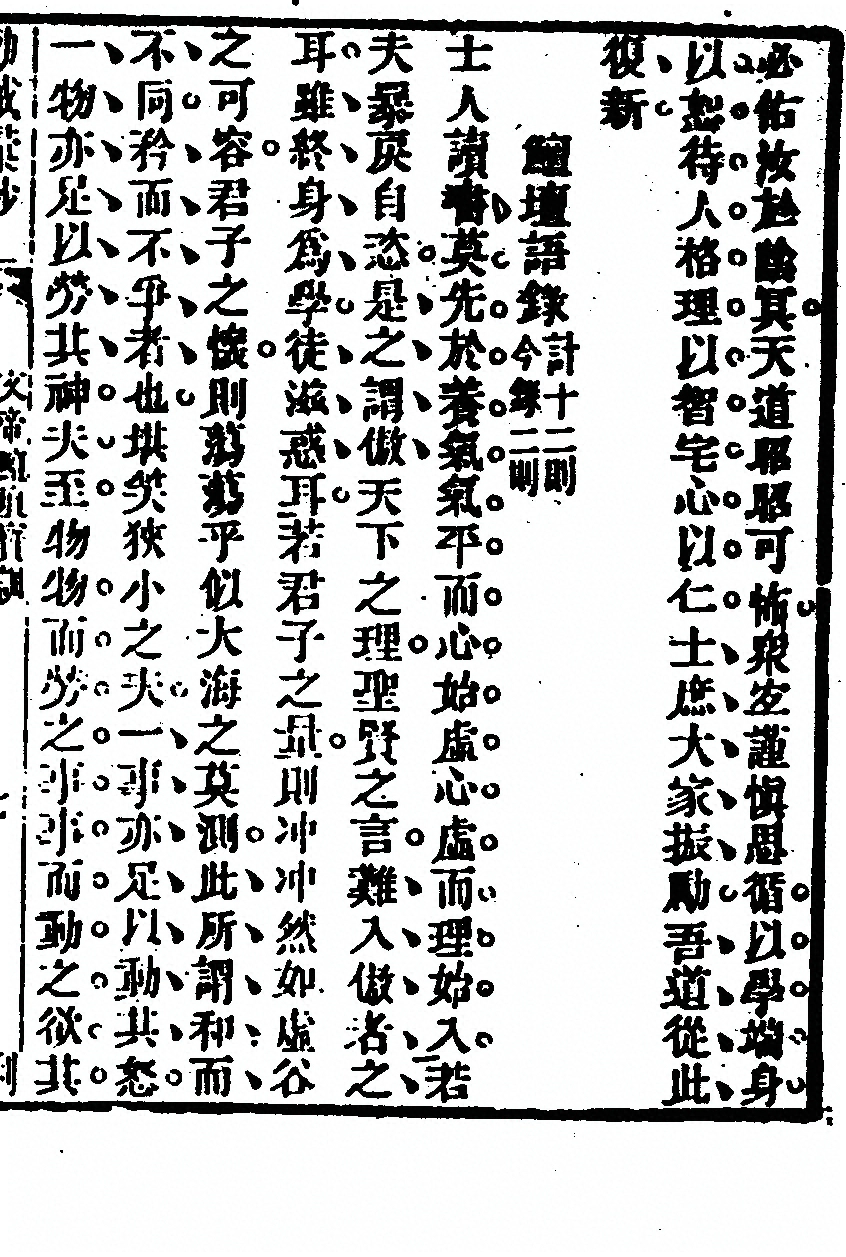 必佑汝於陰冥天道昭昭可怖衆宜謹愼思循以學端身
以恕待人格理以智宅心以仁士庶大家振勵吾道從此
復新
鱣壇語錄計十二則今錄二則
士人讀書莫先於養氣氣平而心始虛心虛而理始入若
夫暴戾自恣是之謂傲天下之理聖賢之言難入傲者之
耳雖終身爲學徒滋惑耳若君子之量則冲冲然如虛谷
之可容君子之懷則蕩蕩乎似大海之莫測此所謂和而
不同矜而不爭者也堪笑狹小之夫一事亦足以動其怒
一物亦足以勞其神夫至物物而勞之事事而動之欲其